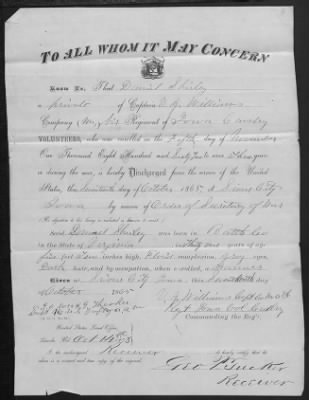 TO ALL WHOM IT MAY CONCERN
Know Ye, That Daniel Shirley
a Private of Captain A. J. Williams
Company (M,) Six Regiment of Iowa Cavalry
VOLUNTEERS, who was enrolled on the Fifth day of
One Thousand Eight Hundred and Sixty to serve Three years
or during the war, is hereby Discharged from the service of the United
States, this Seventeenth day of October 1865, at Sioux City
Iowa by reason of Order of Secretary of War
(No objection to his being re-enlisted is known to exist.)
Said Daniel Shirley was born in
in the State of Virginia, is Thirty years of age
Five feet inches high, Florid complexion, Gray eyes,
Dark hair, and by occupation, when enrolled, a Farmer
Given at Sioux City Iowa this Seventeenth day of
October 1865
Williams Capt
Regt Iowa Vol Cavalry
Commanding the Regt.
United States Land Office,
Lincoln Oct
I, the undersigned Receiver do hereby certify that the
above is a correct and true copy of the original.
Geo P. Tucker
Receiver